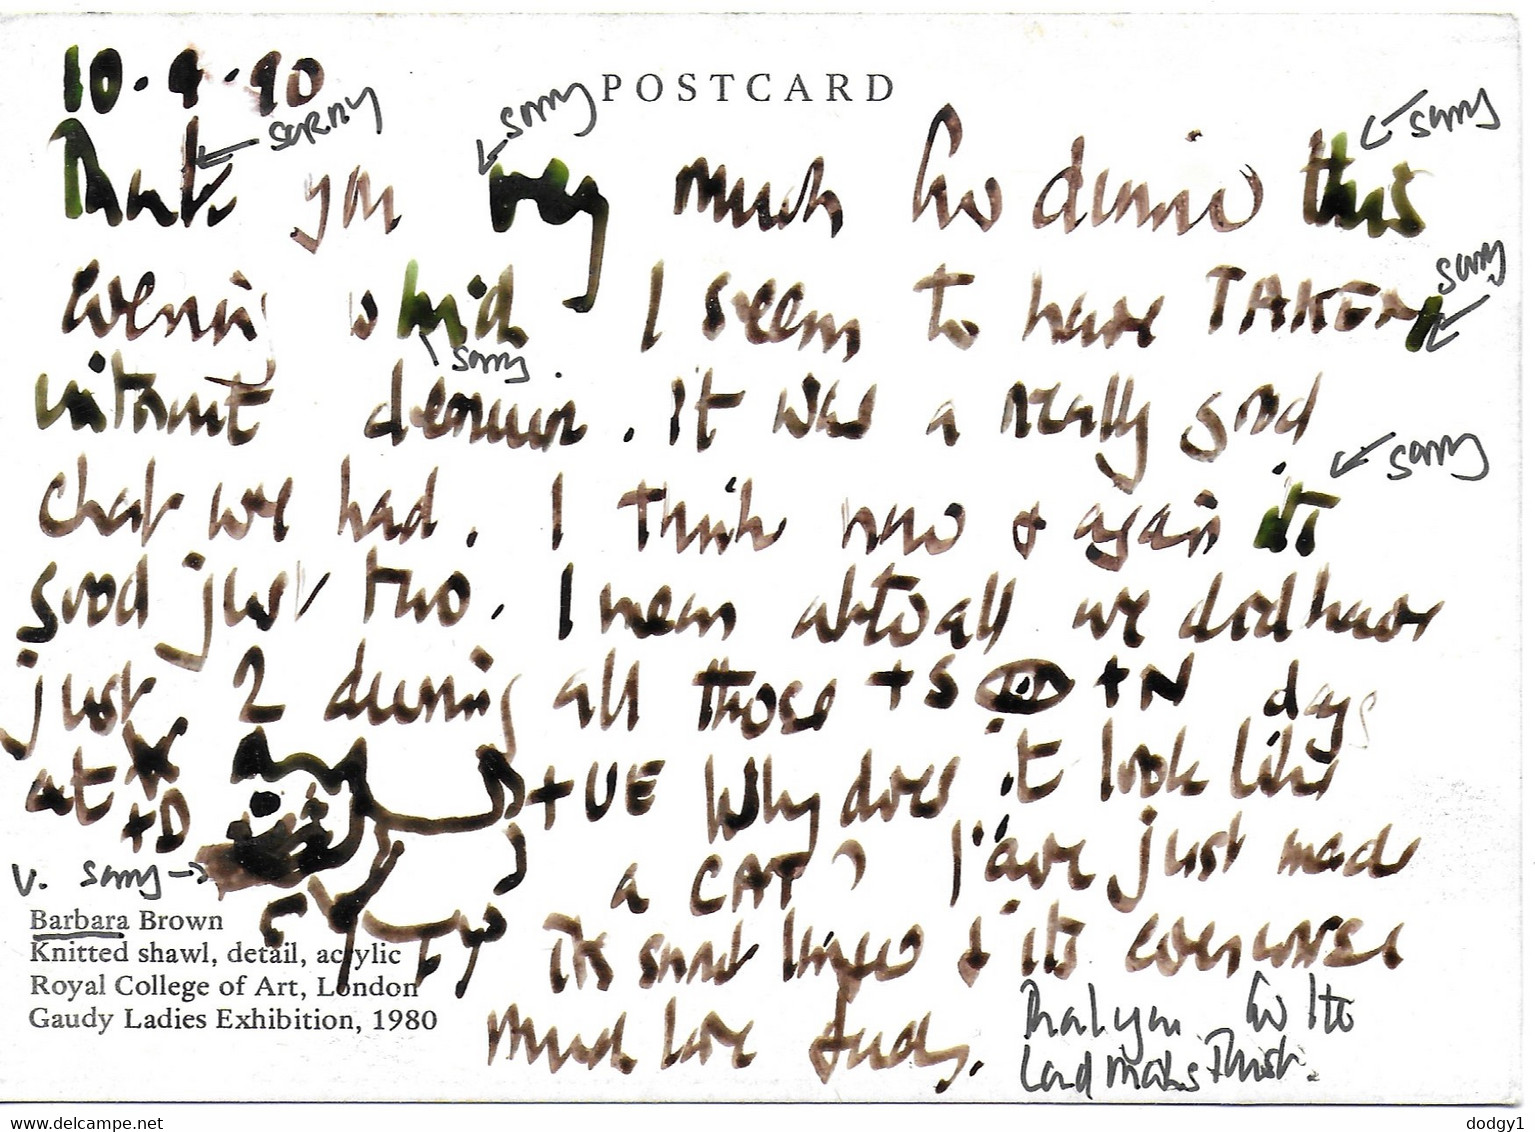 10.9.90
POSTCARD
sorry
sorry
sorry
Thank you very much for dinner this
evening which I seem to have TAKEN
sorry
sorry
without demur. It was a really good
chat we had. I think now & again its
sorry
good just two. I mean after all we did have
just 2 during all those +S +N days
at +D +UE Why does it look like
a CAT? I have just made
v. sorry
its snout longer & its even worse
Much love Judy.
Thank you for the
Landmarks Trust.
Barbara Brown
Knitted shawl, detail, acrylic
Royal College of Art, London
Gaudy Ladies Exhibition, 1980
www.delcampe.net
dodgy1